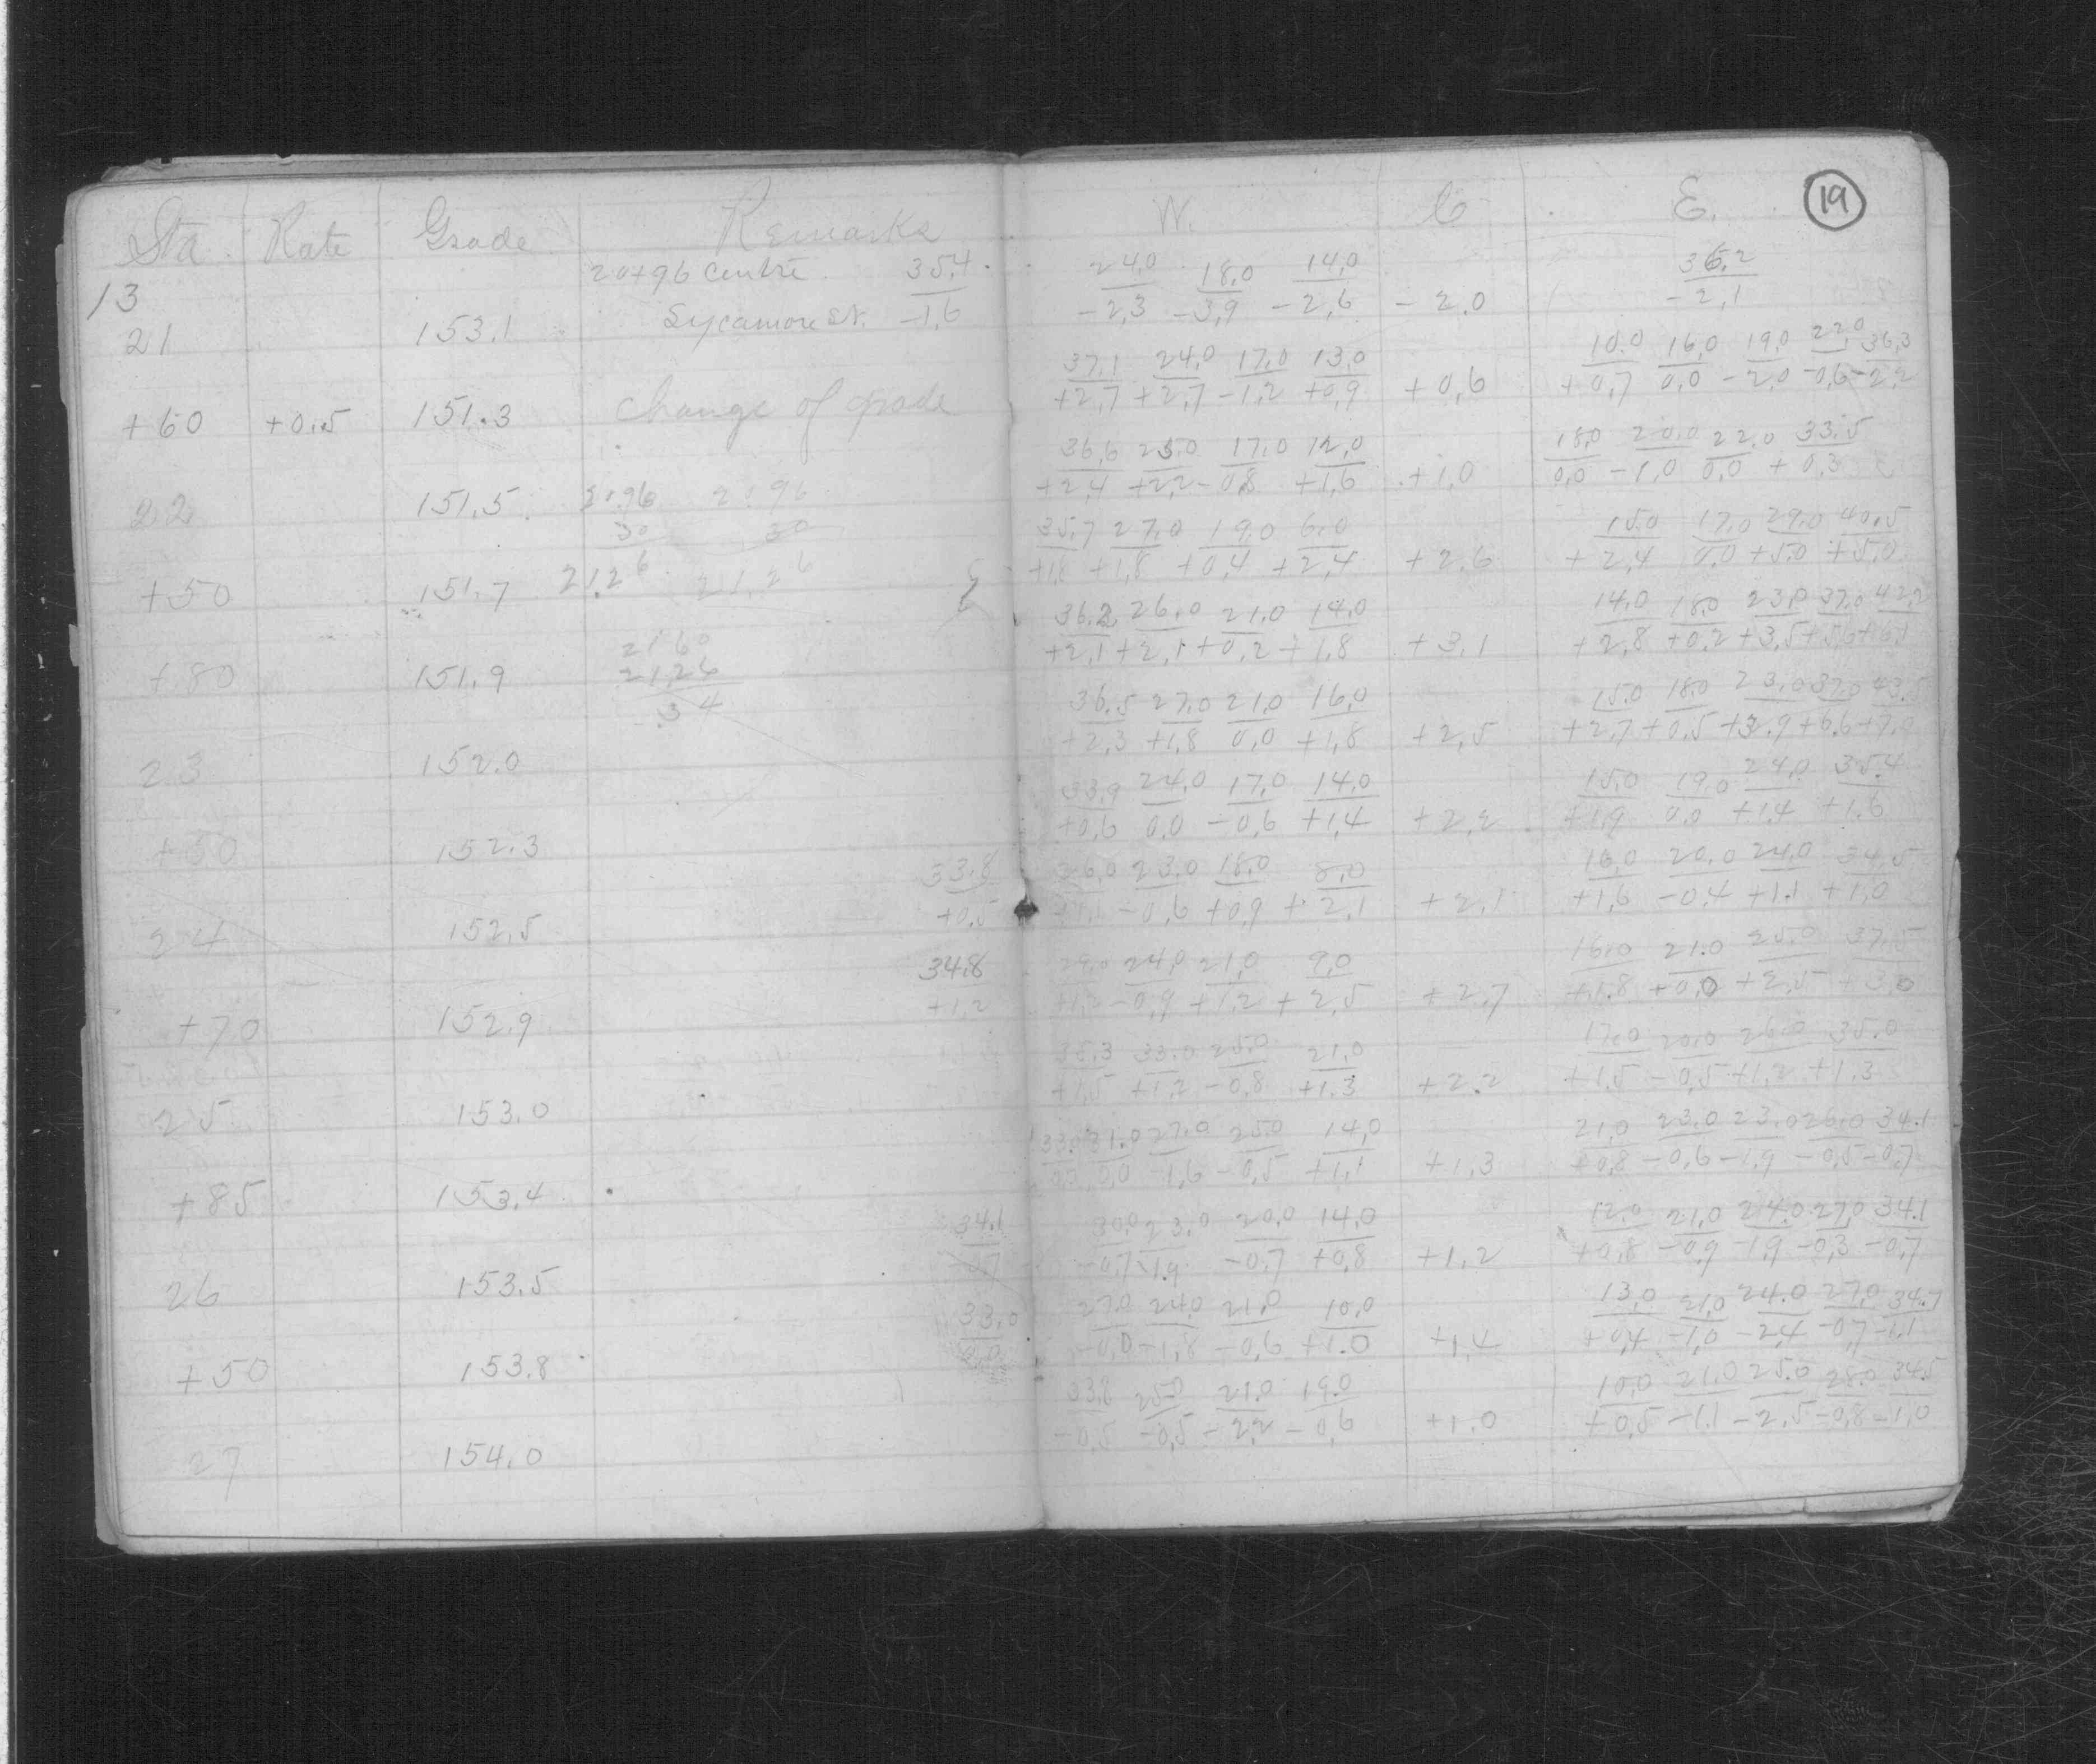 Sta Rate Grade Remarks W. C E. 19
20+96 centre 35.4 24.0 18.0 14.0 36.2
13
21 153.1 Sycamore St. -1.6 -2.3 -3.9 -2.6 -2.0 -2.1
37.1 24.0 17.0 13.0 10.0 16.0 19.0 22.0 36.3
+60 +0.5 151.3 Change of grade +2.7 +2.7 -1.2 +0.9 +0.6 +0.7 0.0 -2.0 -0.6 -2.2
36.6 23.0 17.0 12.0 18.0 20.0 22.0 33.5
22 151.5 20.96 20.96 +2.4 +2.2 -0.8 +1.6 +1.0 0.0 -1.0 0.0 +0.3
30 30
35.7 27.0 19.0 6.0 15.0 17.0 29.0 40.5
+50 151.7 21.26 21.26 +1.8 +1.8 +0.4 +2.4 +2.6 +2.4 0.0 +5.0 +5.0
2160 36.2 26.0 21.0 14.0 14.0 18.0 23.0 37.0 42.2
+80 151.9 2126 +2.1 +2.1 +0.2 +1.8 +3.1 +2.8 +0.2 +3.5 +5.6 +6.1
34
36.5 27.0 21.0 16.0 15.0 18.0 23.0 37.0 43.5
23 152.0 +2.3 +1.8 0.0 +1.8 +2.5 +2.7 +0.5 +3.9 +6.6 +7.0
33.9 24.0 17.0 14.0 15.0 19.0 24.0 35.4
+50 152.3 +0.6 0.0 -0.6 +1.4 +2.2 +1.9 0.0 +1.4 +1.6
33.8 26.0 23.0 18.0 8.0 16.0 20.0 24.0 34.5
24 152.5 +0.5 +1.1 -0.6 +0.9 +2.1 +2.1 +1.6 -0.4 +1.1 +1.0
34.8 29.0 24.0 21.0 9.0 16.0 21.0 25.0 37.5
+70 152.9 +1.2 +1.2 -0.9 +1.2 +2.5 +2.7 +1.8 +0.0 +2.5 +3.0
35.3 33.0 25.0 21.0 17.0 20.0 26.0 35.0
25 153.0 +1.5 +1.2 -0.8 +1.3 +2.2 +1.5 -0.5 +1.2 +1.3
31.0 27.0 25.0 14.0 21.0 23.0 23.0 26.0 34.1
+85 153.4 0.0 -1.6 -0.5 +1.1 +1.3 +0.8 -0.6 -1.9 -0.5 -0.7
34.1 30.0 23.0 20.0 14.0 12.0 21.0 24.0 27.0 34.1
26 153.5 -0.7 -0.7 -1.9 -0.7 +0.8 +1.2 +0.8 -0.9 -1.9 -0.3 -0.7
33.0 27.0 24.0 21.0 10.0 13.0 21.0 24.0 27.0 34.7
+50 153.8 0.0 -0.0 -1.8 -0.6 +1.0 +1.4 +0.4 -1.0 -2.4 -0.7 -1.1
33.8 25.0 21.0 19.0 10.0 21.0 25.0 28.0 34.5
27 154.0 -0.5 -0.5 -2.2 -0.6 +1.0 +0.5 -1.1 -2.5 -0.8 -1.0